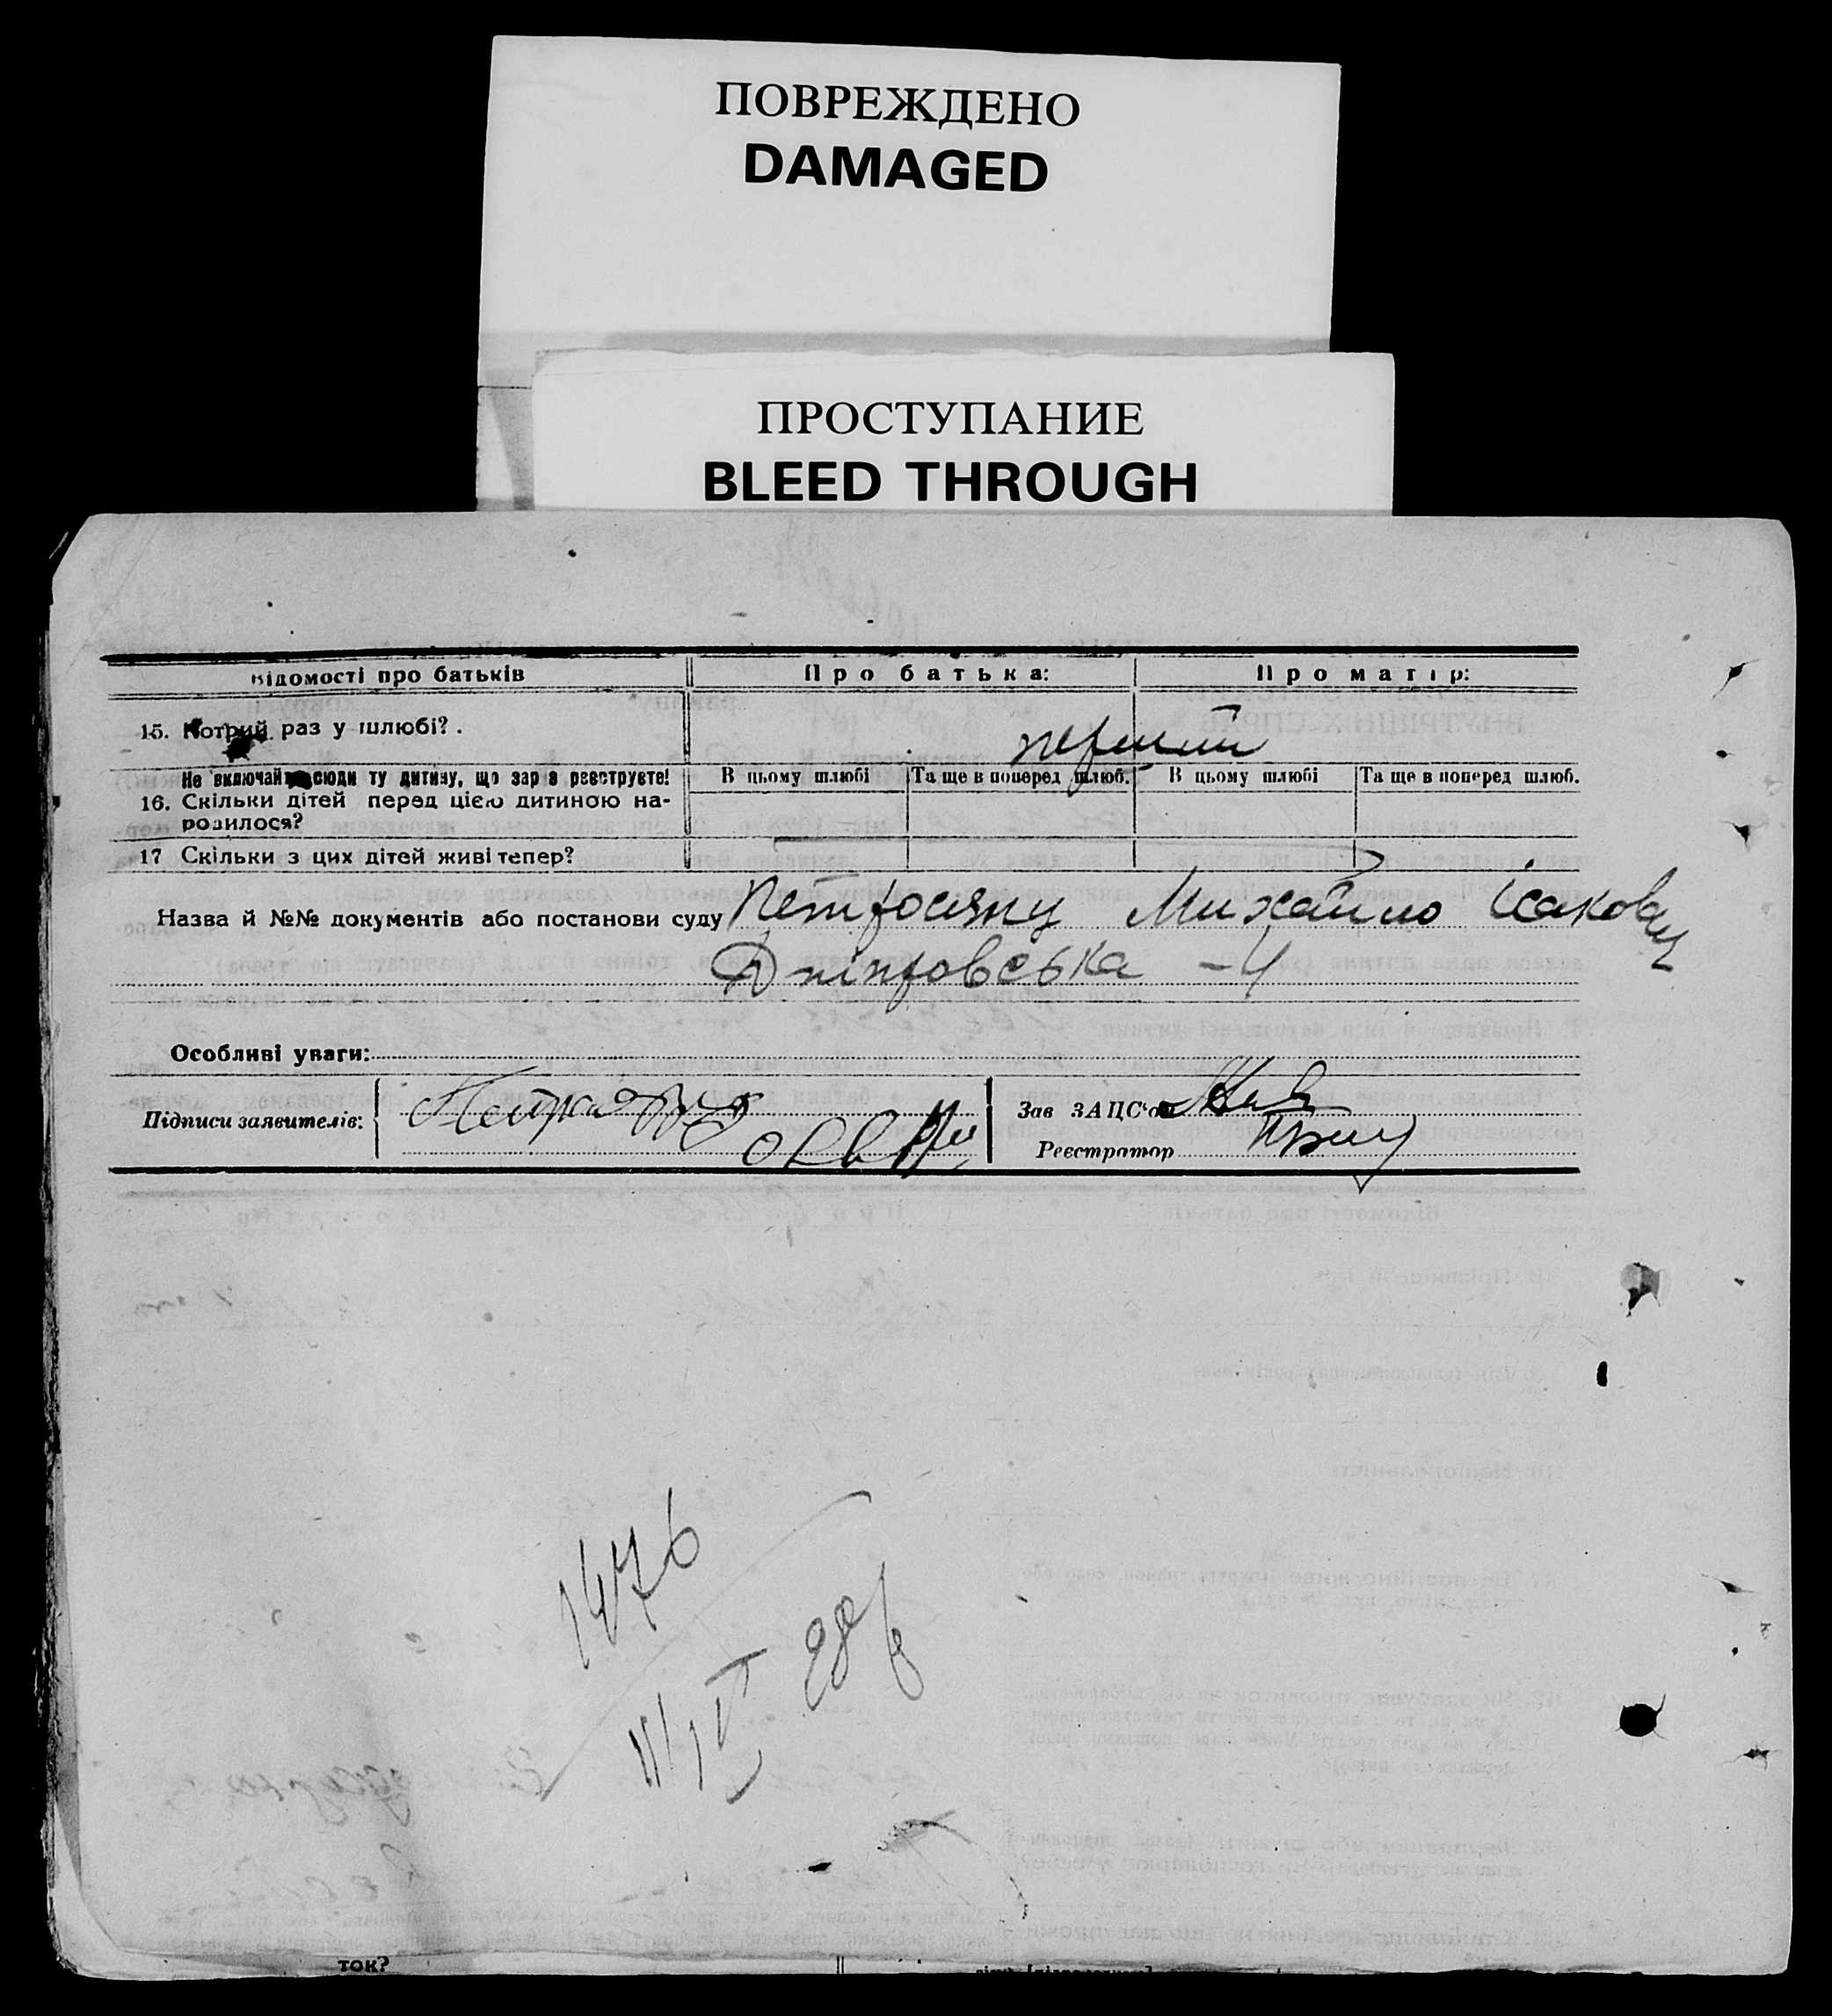 ПОВРЕЖДЕНО
DAMAGED
ПРОСТУПАНИЕ
BLEED THROUGH
Відомості про батьків Про батька: Про матір:
15. Котрий раз у шлюбі? . перший
Не включайте сюди ту дитину, що зараз реєструєте! В цьому шлюбі Та ще в поперед шлюб. В цьому шлюбі Та ще в поперед шлюб.
16. Скільки дітей перед цією дитиною на-
родилося?
17 Скільки з цих дітей живі тепер?
Назва й №№ документів або постанови суду Петросянц Михайло Ісакович
Дніпровська - 4
Особливі уваги:
Підписи заявителів:
Зав ЗАЦС'ом
Реєстратор
1476
11/IV 28 р
ток?